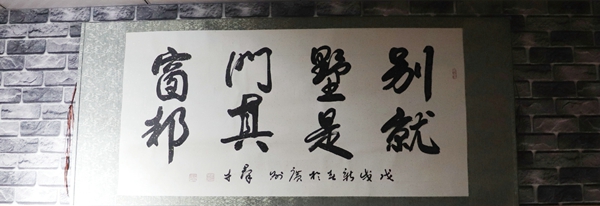 别墅門窗
就是其都
戊戌新春於廣州